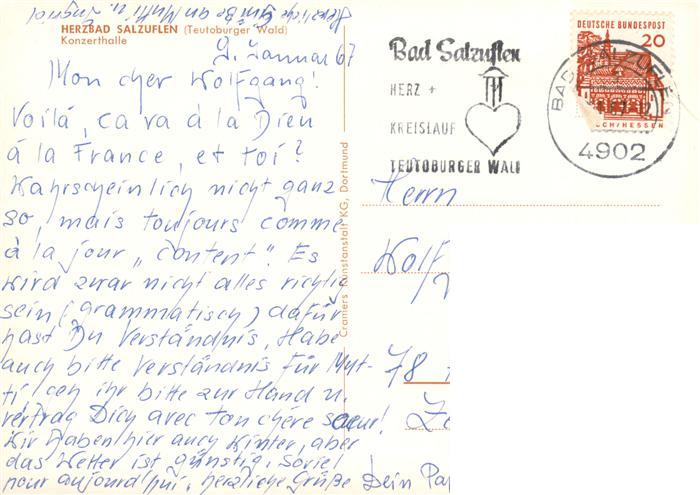 Herzliche Grüße an Mutti u. Ingrid
HERZBAD SALZUFLEN (Teutoburger Wald)
Konzerthalle
2. Januar 67
Mon cher Wolfgang!
Voilá, ca va á la Dieu
á la France, et toi?
Wahrscheinlich nicht ganz
so, mais toujours comme
á la jour „content". Es
wird zwar nicht alles richtig
sein (grammatisch) dafür
hast Du Verständnis, Habe
auch bitte Verständnis für Mut-
ti, geh ihr bitte zur Hand u.
vertrag Dich avec ton chére soeur!
Wir haben hier auch Winter, aber
das Wetter ist günstig. Soviel
pour aujourd'hui, herzliche Grüße Dein Pa
Cramers Kunstanstalt KG, Dortmund
Bad Salzuflen
HERZ +
KREISLAUF
TEUTOBURGER WALD
DEUTSCHE BUNDESPOST
20
CH/HESSEN
BAD SALZUFLEN
4902
Herrn
Wolf
78